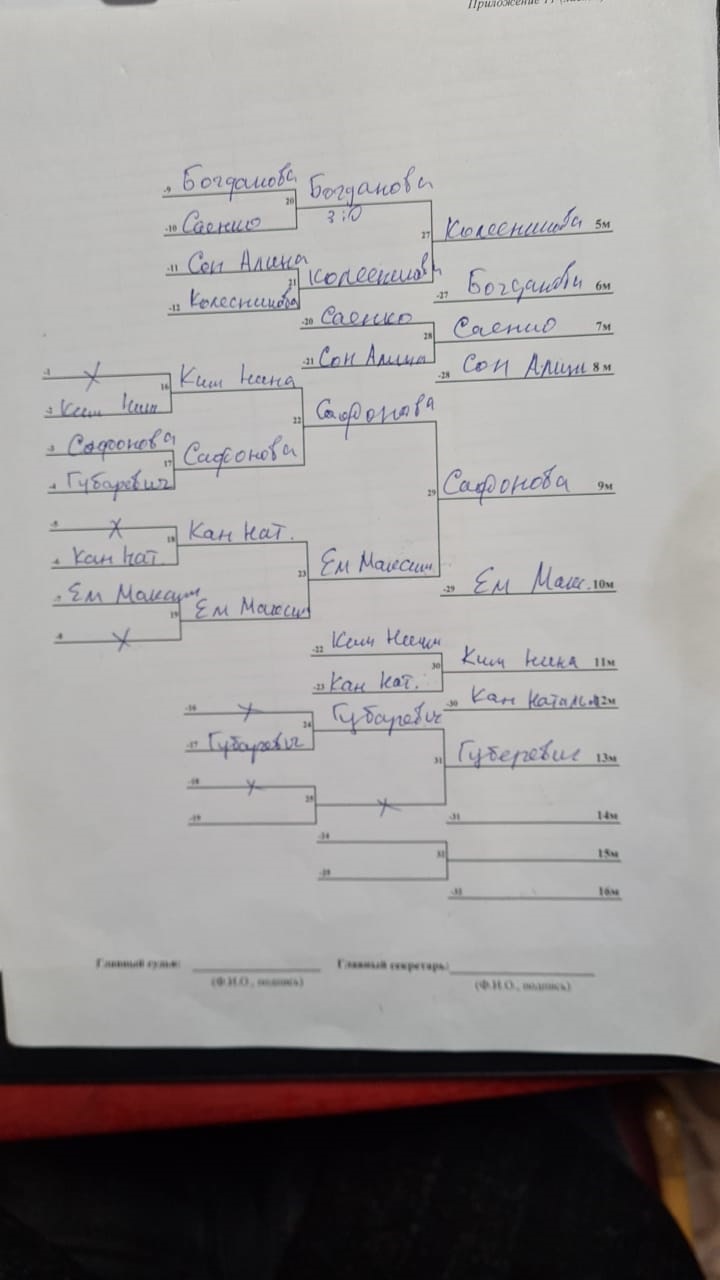 Приложение 11
-9 Богданова
Богданова
20
3:0
-10 Саенко
27
Колесникова 5м
-11 Сон Алина
21
Колесникова
-12 Колесникова
-27 Богданова 6м
-20 Саенко
28
Саенко 7м
-21 Сон Алина
-28 Сон Алина 8м
-1 X
16
Ким Нина
-2 Ким Нин
22
Сафонова
-3 Сафонова
17
Сафонова
-4 Губаревич
29
Сафонова 9м
-5 X
18
Кан Нат.
-6 Кан Нат.
23
Ем Максим
-7 Ем Максим
19
Ем Максим
-8 X
-29 Ем Макс. 10м
-22 Ким Нина
30
Ким Нина 11м
-23 Кан Нат.
-30 Кан Наталья 12м
-16 X
24
Губаревич
-17 Губаревич
31
Губеревич 13м
-18 X
25
X
-19
-31 14м
-24
32
15м
-25
-32 16м
Главный судья: Главный секретарь:
(Ф.И.О., подпись) (Ф.И.О., подпись)